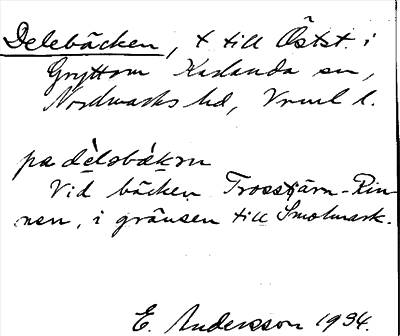 Delebäcken, t till Östst. i
Gryttom Karlanda sn,
Nordmarks hd, Vrml l.
pa dèlobäkrn
Vid bäcken Trosstjärn-Rin-
nen, i gränsen till Smolmark.
E. Andersson 1934.